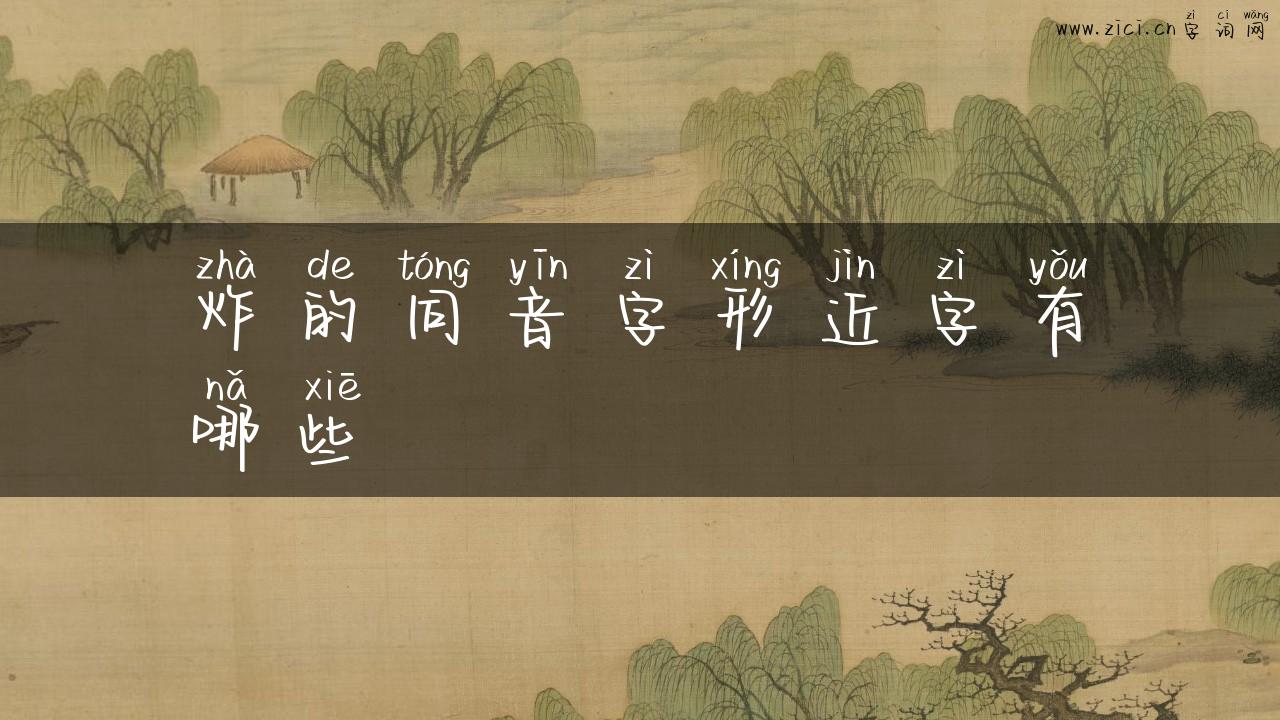 zì cí wǎng
www.zici.cn 字 词 网
zhà de tóng yīn zì xíng jìn zì yǒu
炸 的 同 音 字 形 近 字 有
nǎ xiē
哪 些